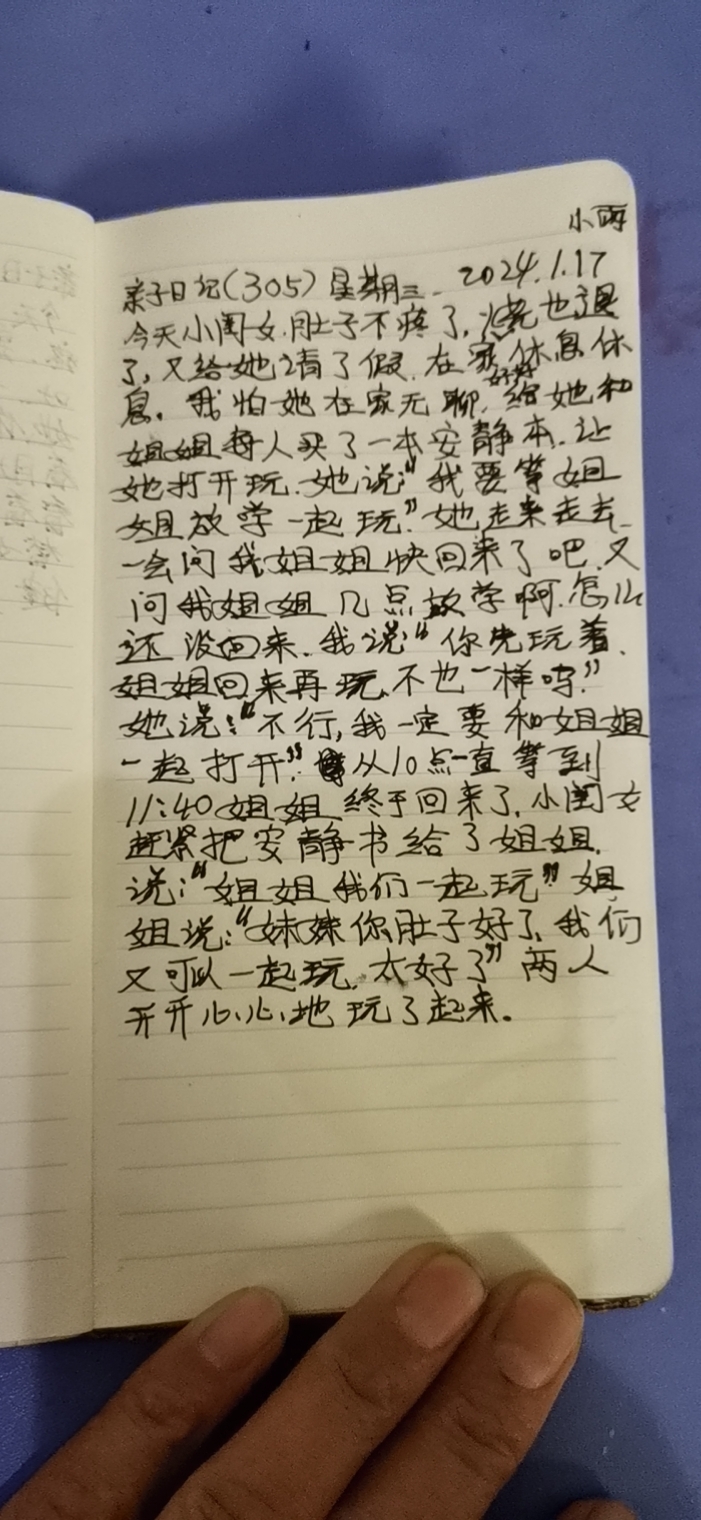 小雨
亲子日记(305) 星期三. 2024.1.17
今天小闺女肚子不疼了,烧也退
了,又给她请了假.在家好好休息休
息。我怕她在家无聊.给她和
姐姐每人买了一本安静本.让
她打开玩.她说:“我要等姐
姐放学一起玩”.她走来走去.
一会问我姐姐快回来了吧.又
问我姐姐几点放学啊.怎么
还没回来.我说:“你先玩着.
姐姐回来再玩.不也一样吗?”
她说:“不行,我一定要和姐姐
一起打开”.从10点一直等到
11:40姐姐终于回来了.小闺女
赶紧把安静书给了姐姐.
说:“姐姐我们一起玩”姐
姐说:“妹妹你肚子好了.我们
又可以一起玩.太好了”两人
开开心心地玩了起来。